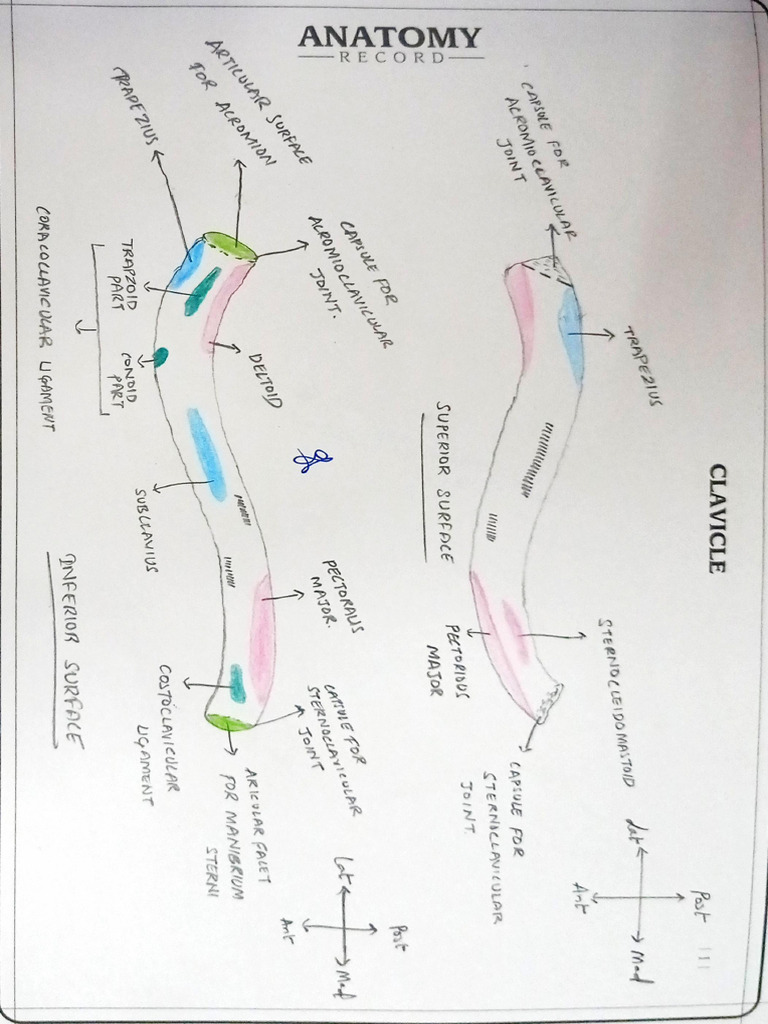 ANATOMY
RECORD
CLAVICLE
CAPSULE FOR
ACROMIOCLAVICULAR
JOINT
TRAPEZIUS
SUPERIOR SURFACE
STERNOCLEIDOMASTOID
PECTORIOUS
MAJOR
CAPSULE FOR
STERNOCLAVICULAR
JOINT.
Lat
Post
Ant
Med
ARTICULAR SURFACE
FOR ACROMION
TRAPEZIUS
CAPSULE FOR
ACROMIOCLAVICULAR
JOINT.
TRAPZOID
PART
CONOID
PART
CORACOCLAVICULAR LIGAMENT
DELTOID
SUBCLAVIUS
PECTORALIS
MAJOR.
CAPSULE FOR
STERNOCLAVICULAR
JOINT
COSTOCLAVICULAR
LIGAMENT
ARICULAR FACET
FOR MANIBRIUM
STERNI
INFERIOR SURFACE
Lat
Post
Ant
Med